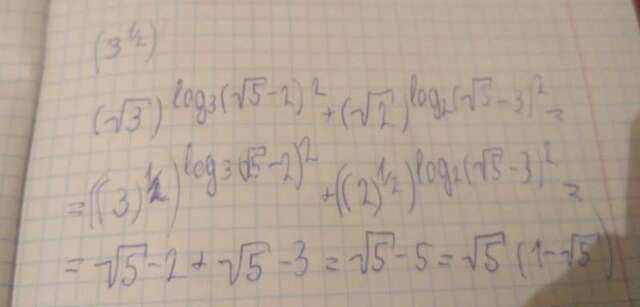 (3^½)
(√3)^log₃(√5-2)² + (√2)^log₂(√5-3)² =
= ((3)^½)^log₃(√5-2)² + ((2)^½)^log₂(√5-3)² =
= √5-2 + √5-3 = √5-5 = √5 (1-√5)